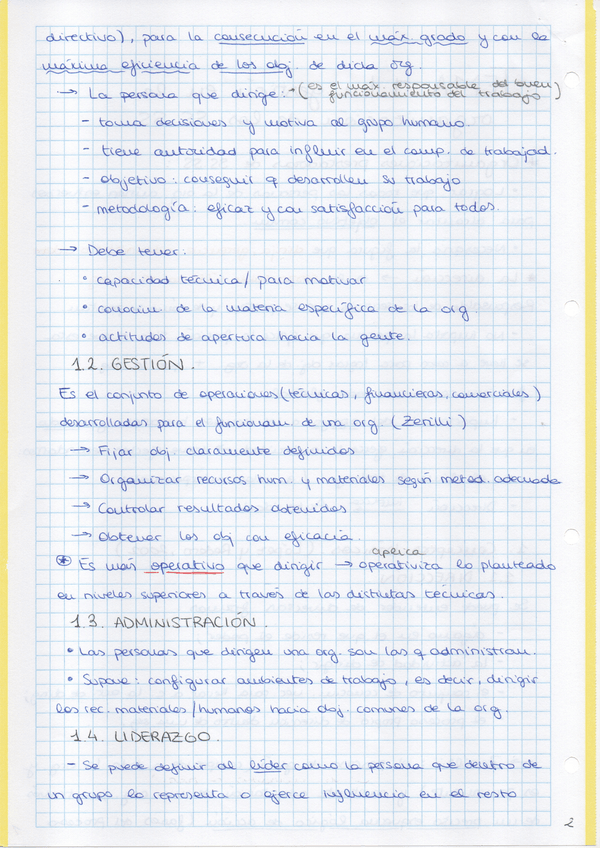 directivo), para la consecución en el máx. grado y con la
máxima eficiencia de los obj. de dicha org.
→ La persona que dirige: → (es el máx. responsable del buen funcionamiento del trabajo)
- toma decisiones y motiva al grupo humano.
- tiene autoridad para influir en el comp. de trabajad.
- objetivo: conseguir q desarrollen su trabajo
- metodología: eficaz y con satisfacción para todos.
→ Debe tener:
• capacidad técnica / para motivar
• conocim. de la materia específica de la org.
• actitudes de apertura hacia la gente.
1.2. GESTIÓN.
Es el conjunto de operaciones (técnicas, financieras, comerciales)
desarrolladas para el funcionam. de una org. (Zerilli)
→ Fijar obj. claramente definidos
→ Organizar recursos hum. y materiales según metod. adecuada
→ Controlar resultados obtenidos
→ Obtener los obj con eficacia.
aplica
* Es más operativo que dirigir → operativiza lo planteado
en niveles superiores a través de las distintas técnicas.
1.3. ADMINISTRACIÓN.
• Las personas que dirigen una org. son las q administran.
• Supone: configurar ambientes de trabajo, es decir, dirigir
los rec. materiales / humanos hacia obj. comunes de la org.
1.4. LIDERAZGO.
- Se puede definir al líder como la persona que dentro de
un grupo lo representa o ejerce influencia en el resto
2